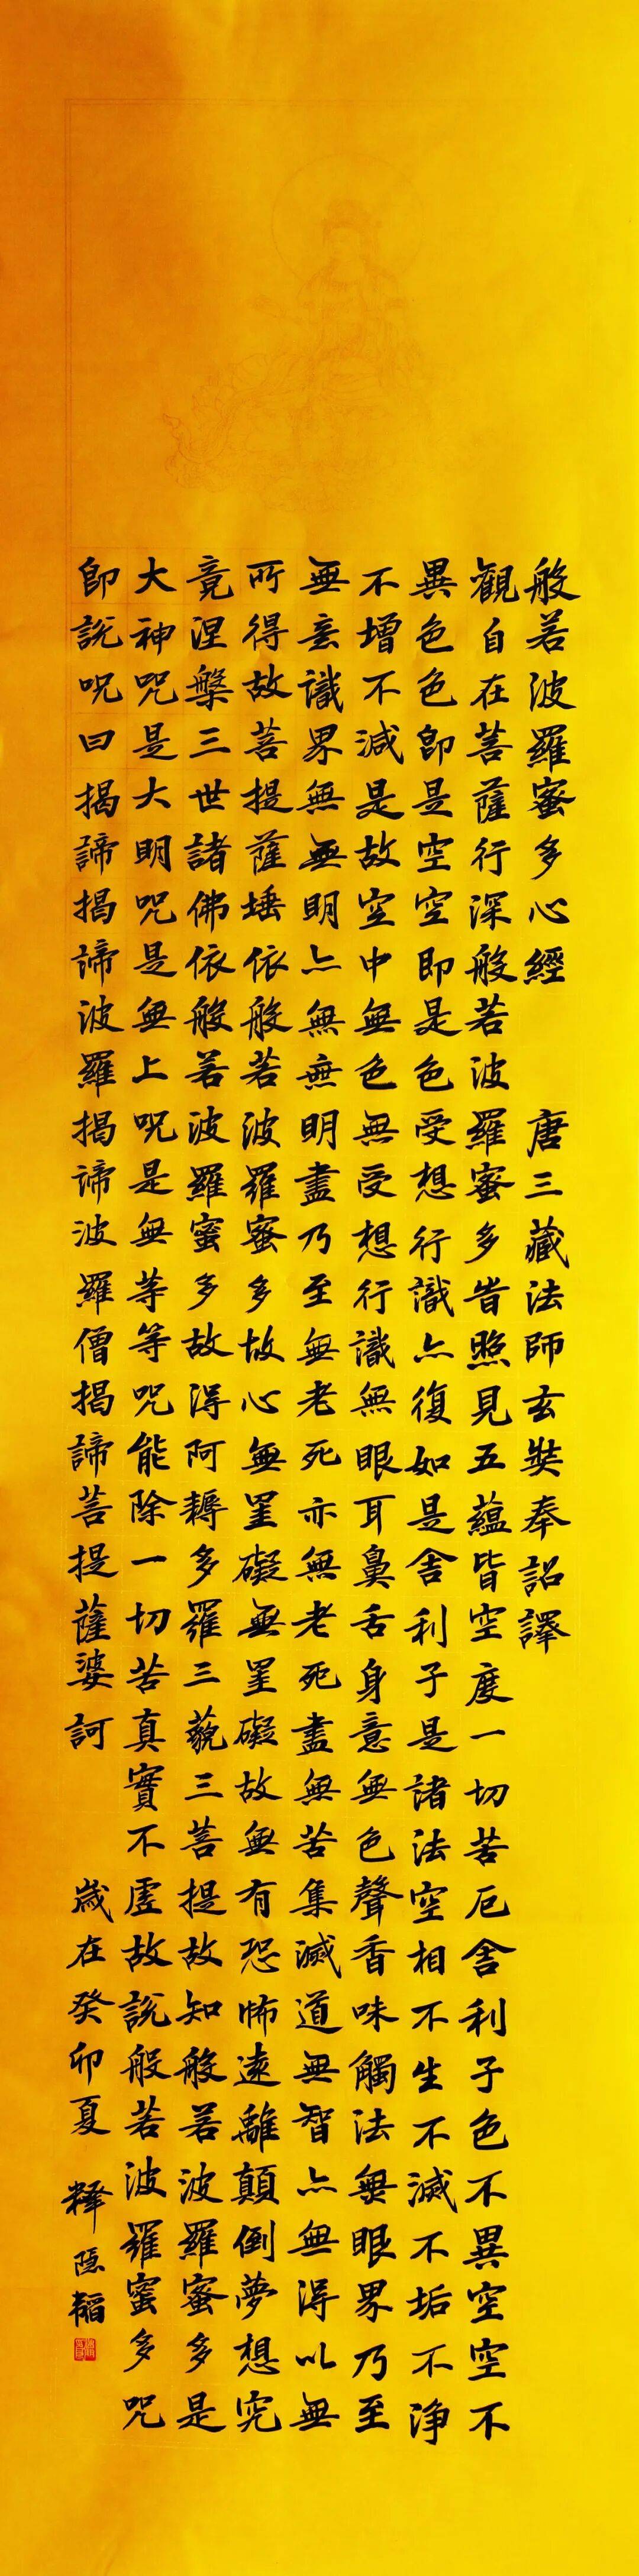 般若波羅蜜多心經 唐三藏法師玄奘奉詔譯
觀自在菩薩行深般若波羅蜜多旹照見五蘊皆空度一切苦厄舍利子色不異空空不
異色色即是空空即是色受想行識亦復如是舍利子是諸法空相不生不滅不垢不淨
不增不減是故空中無色無受想行識無眼耳鼻舌身意無色聲香味觸法無眼界乃至
無意識界無無明亦無無明盡乃至無老死亦無老死盡無苦集滅道無智亦無得以無
所得故菩提薩埵依般若波羅蜜多故心無罣礙無罣礙故無有恐怖遠離顛倒夢想究
竟涅槃三世諸佛依般若波羅蜜多故得阿耨多羅三藐三菩提故知般若波羅蜜多是
大神咒是大明咒是無上咒是無等等咒能除一切苦真實不虛故說般若波羅蜜多咒
即說咒曰揭諦揭諦波羅揭諦波羅僧揭諦菩提薩婆訶 歲在癸卯夏 釋隱韜